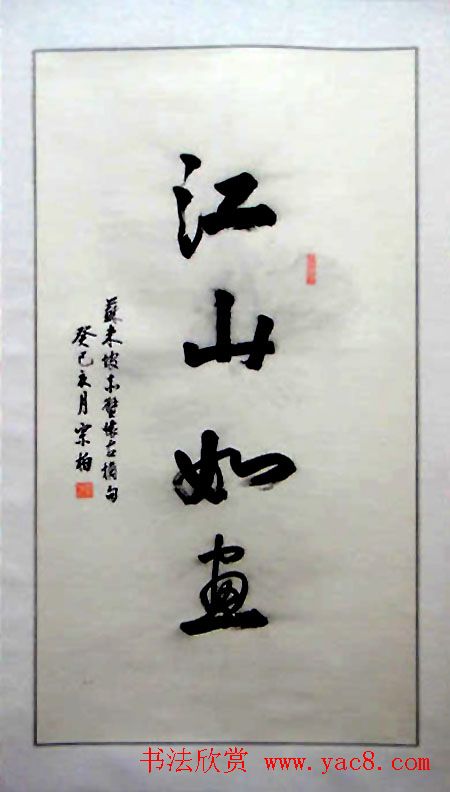 江山如画
蘇東坡赤壁懷古摘句
癸巳亥月宗柏
书法欣赏 www.yac8.com